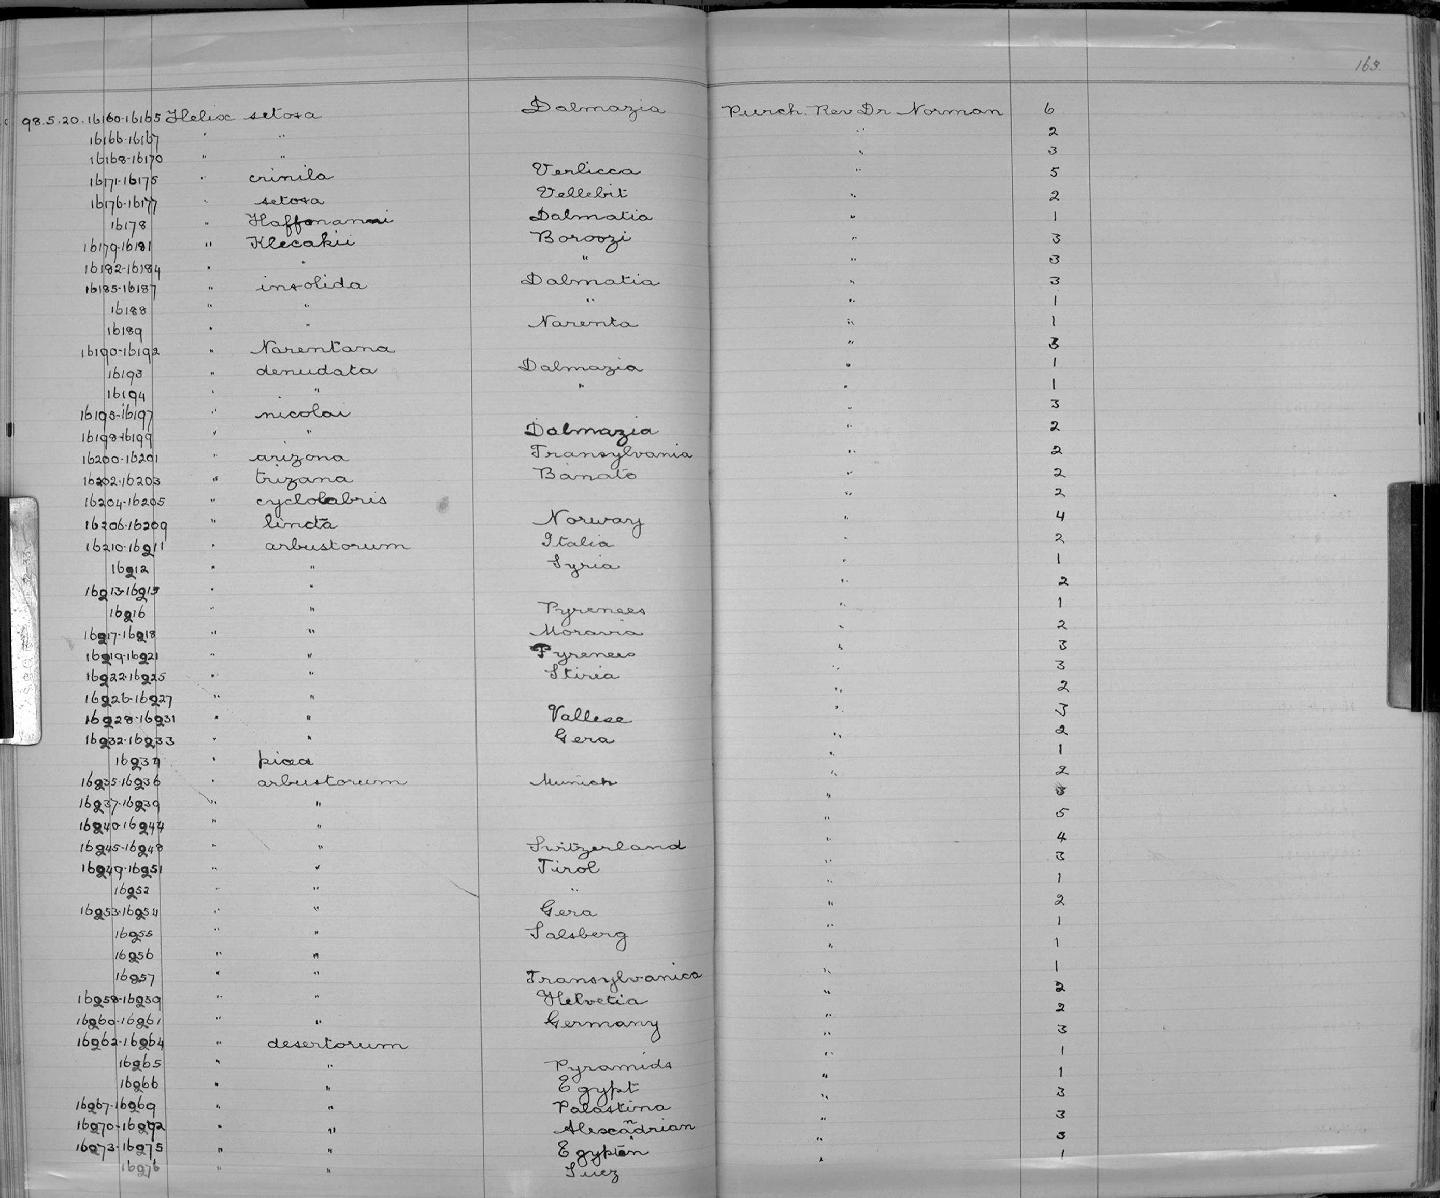 163.
98.5.20.16160-16165 Helix setosa Dalmazia Purch. Rev Dr Norman 6
16166-16167 " " " 2
16168-16170 " " " 3
16171-16175 " crinila Verlicca " 5
16176-16177 " setosa Vellebit " 2
16178 " Dalmatia " 1
16179-16181 " Klecakii Boroozi " 3
16182-16184 " " " " 3
16185-16187 " insolida Dalmatia " 3
16188 " " " " 1
16189 " " Narenta " 1
16190-16192 " Narentana " 3
16193 " denudata Dalmazia " 1
16194 " " " " 1
16195-16197 " nicolai " 3
16198-16199 " " Dalmazia " 2
16200-16201 " arizona Transylvania " 2
16202-16203 " trizana Banato " 2
16204-16205 " cyclolabris " 2
16206-16209 " lincta Norway " 4
16210-16211 " arbustorum Italia " 2
16212 " " Syria " 1
16213-16215 " " " 2
16216 " " Pyrenees " 1
16217-16218 " " Moravia " 2
16219-16221 " " Pyrenees " 3
16222-16225 " " Stiria " 3
16226-16227 " " " 2
16228-16231 " " Vallese " 3
16232-16233 " " Gera " 2
16234 " picea " 1
16235-16236 " arbustorum Munich " 2
16237-16239 " " " 3
16240-16244 " " " 5
16245-16248 " " Switzerland " 4
16249-16251 " " Tirol " 3
16252 " " " " 1
16253-16254 " " Gera " 2
16255 " " Salsberg " 1
16256 " " " 1
16257 " " Transylvanica " 1
16258-16259 " " Helvetia " 2
16260-16261 " " Germany " 2
16262-16264 " desertorum " 3
16265 " " Pyramids " 1
16266 " " Egypt " 1
16267-16269 " " Palastina " 3
16270-16272 " " Alexandrian " 3
16273-16275 " " Egypten " 3
16276 " " Suez " 1